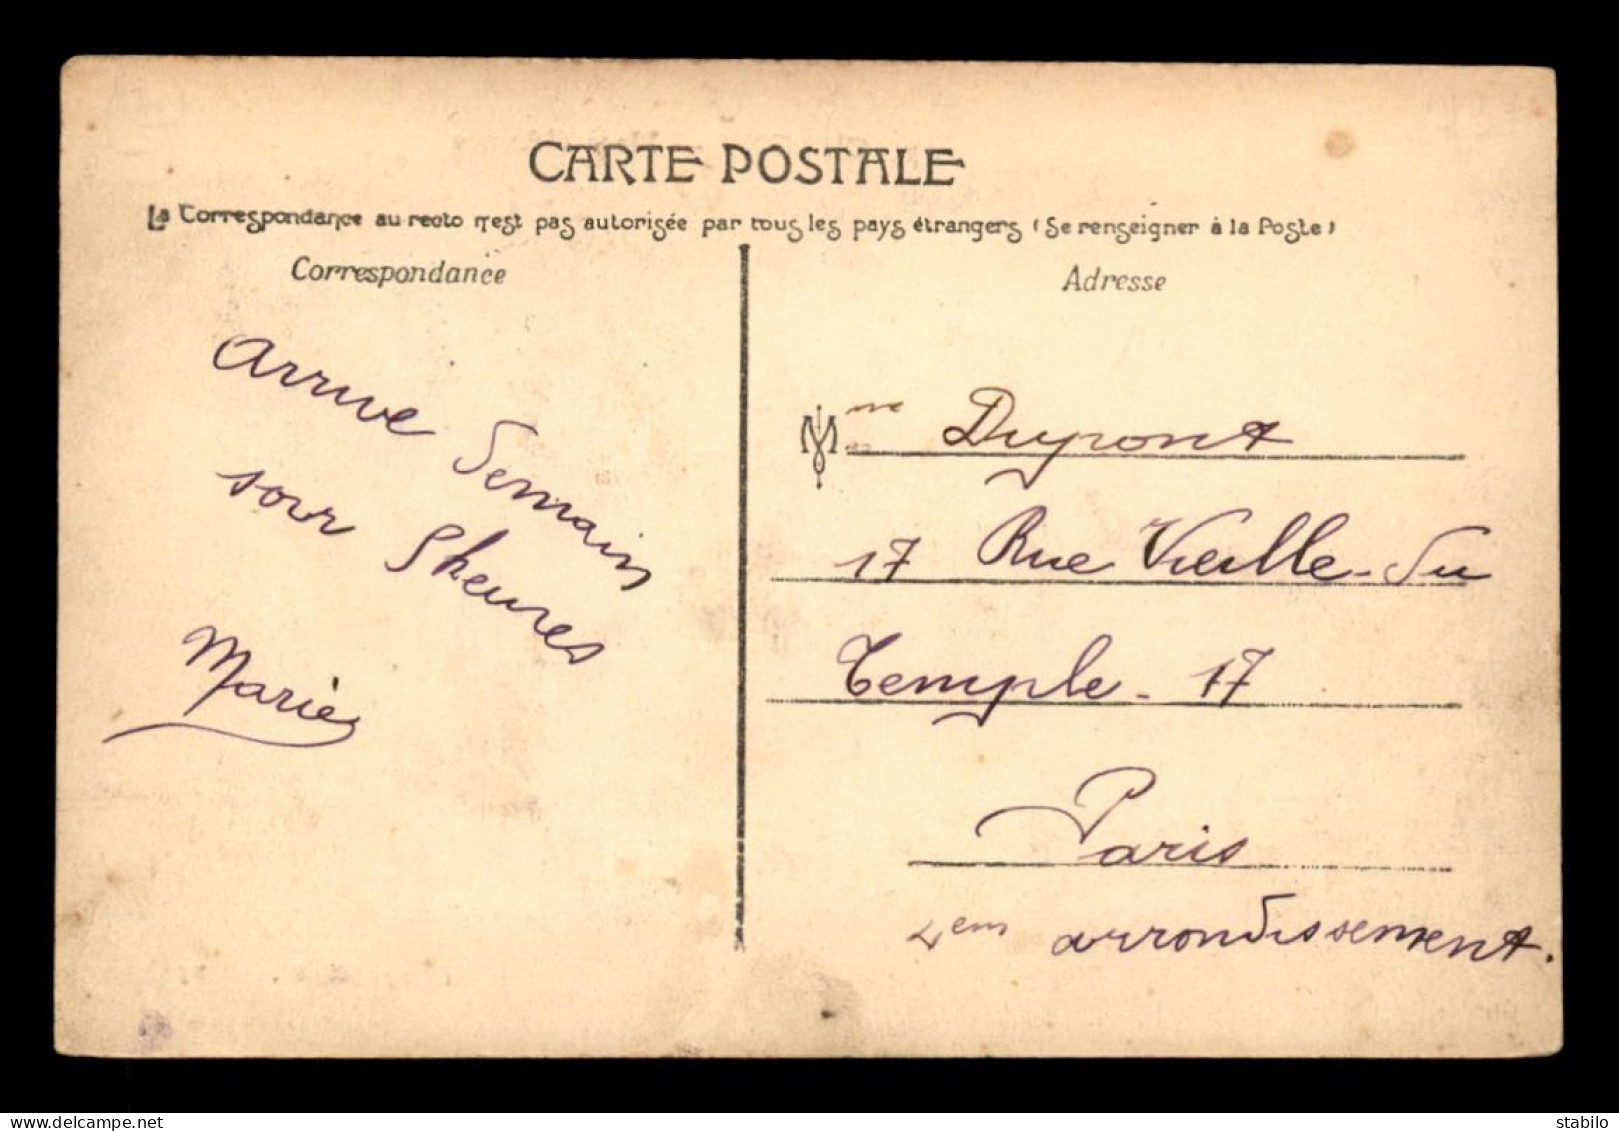 CARTE POSTALE
La Correspondance au recto n'est pas autorisée par tous les pays étrangers (Se renseigner à la Poste)
Correspondance
Arrive demain
soir 9 heures
Marie
Adresse
Mme Dupont
17 Rue Vieille-du
Temple - 17
Paris
4em arrondissement.
stabilo
www.delcampe.net